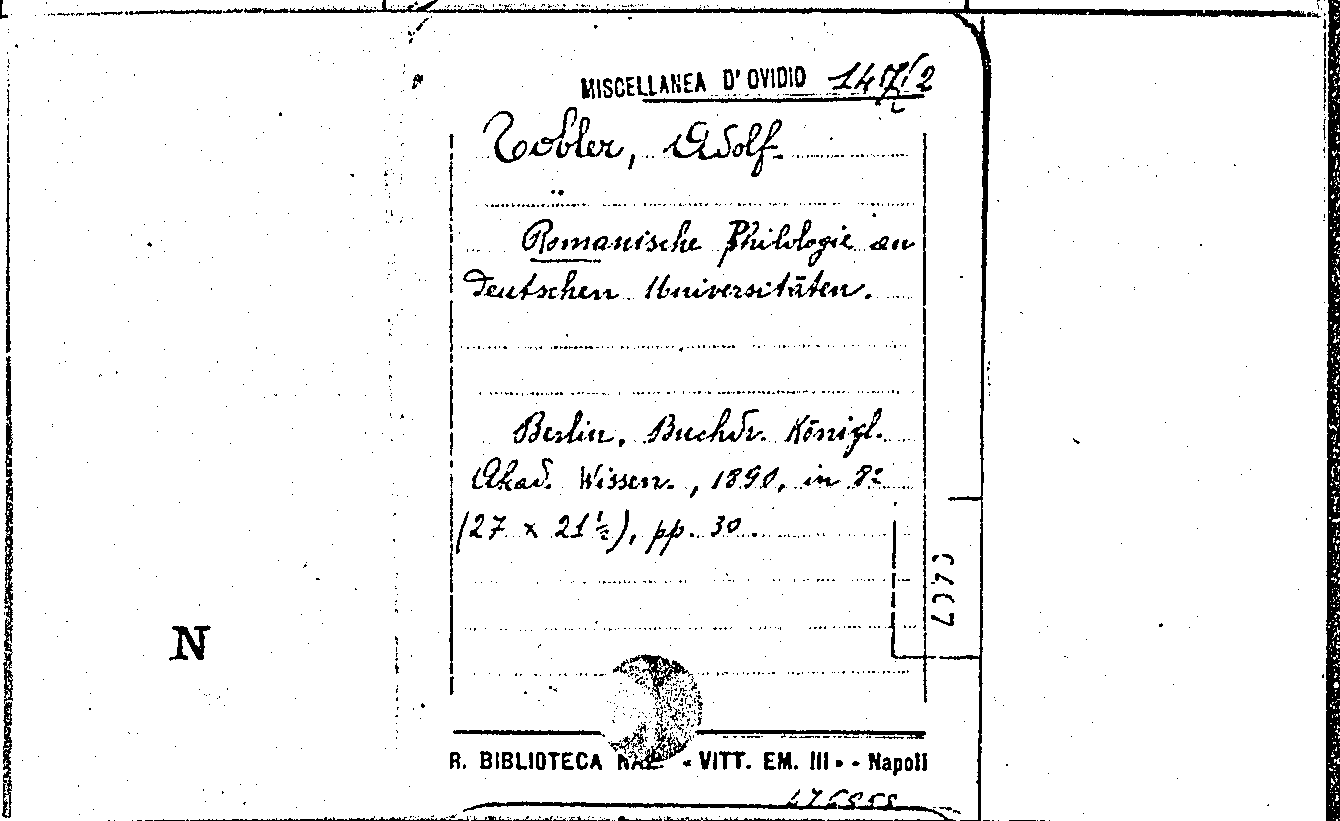 MISCELLANEA D'OVIDIO
Tobler, Adolf.
Romanische Philologie an
Deutschen Universitäten.
Berlin, Buchdr. Königl.
Akad. Wissen., 1890, in 8º
(27 x 21 ½), pp. 30.
N
R. BIBLIOTECA NAZ. « VITT. EM. III » - Napoli